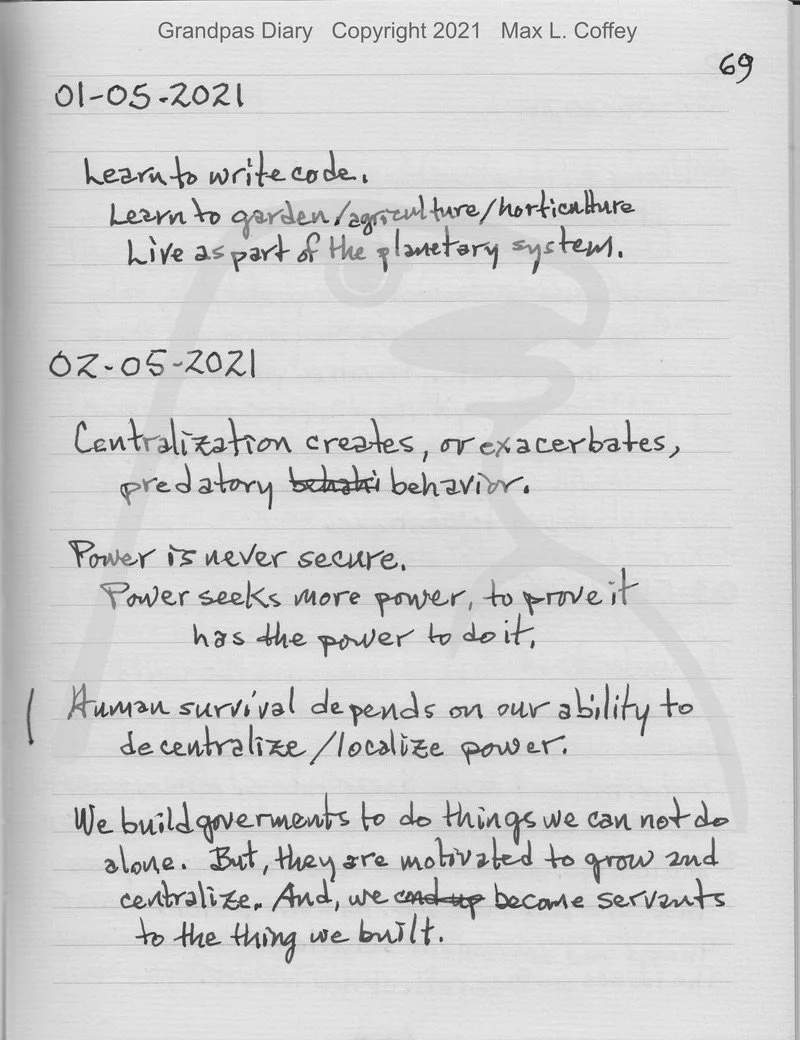 Grandpas Diary Copyright 2021 Max L. Coffey
69
01-05-2021
Learn to write code.
Learn to garden/agriculture/horticulture
Live as part of the planetary system.
02-05-2021
Centralization creates, or exacerbates,
predatory behavior.
Power is never secure.
Power seeks more power, to prove it
has the power to do it.
Human survival depends on our ability to
decentralize/localize power.
We build goverments to do things we can not do
alone. But, they are motivated to grow and
centralize. And, we end up become servants
to the thing we built.